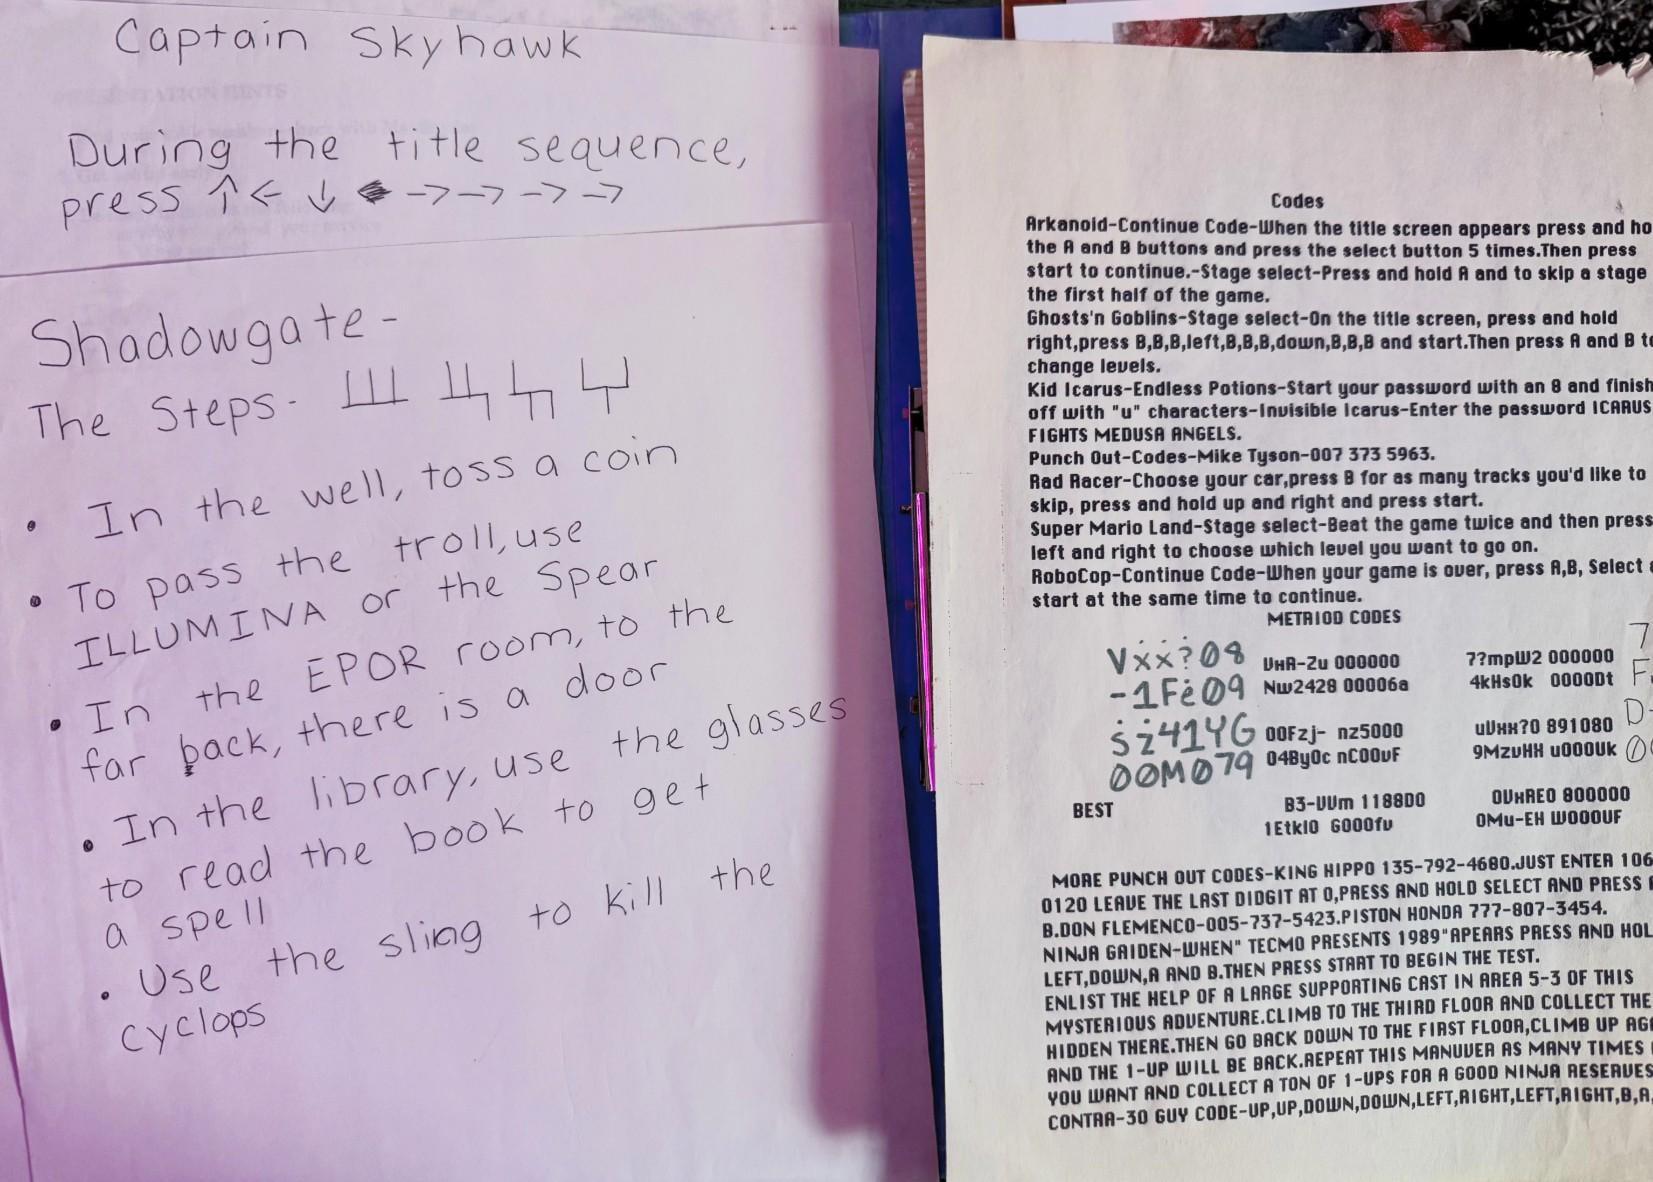 Captain Skyhawk
During the title sequence,
press ↑ ← ↓ → → → →
Shadowgate-
The Steps-
• In the well, toss a coin
• To pass the troll, use
ILLUMINA or the Spear
• In the EPOR room, to the
far back, there is a door
• In the library, use the glasses
to read the book to get
a spell
• Use the sling to kill the
cyclops
Codes
Arkanoid-Continue Code-When the title screen appears press and ho
the A and B buttons and press the select button 5 times.Then press
start to continue.-Stage select-Press and hold A and to skip a stage
the first half of the game.
Ghosts'n Goblins-Stage select-On the title screen, press and hold
right,press B,B,B,left,B,B,B,down,B,B,B and start.Then press A and B to
change levels.
Kid Icarus-Endless Potions-Start your password with an 8 and finish
off with "u" characters-Invisible Icarus-Enter the password ICARUS
FIGHTS MEDUSA ANGELS.
Punch Out-Codes-Mike Tyson-007 373 5963.
Rad Racer-Choose your car,press B for as many tracks you'd like to
skip, press and hold up and right and press start.
Super Mario Land-Stage select-Beat the game twice and then press
left and right to choose which level you want to go on.
RoboCop-Continue Code-When your game is over, press A,B, Select
start at the same time to continue.
METRIOD CODES
Vxx?08 VHA-Zu 000000 7?mpW2 000000 7
-1Fe09 Nw2428 00006a 4kHsOk 0000Dt F
sz41YG 00Fzj- nz5000 uVxx?0 891080 D
00M079 04ByOc nC00vF 9MzvHX u000Uk
BEST B3-VVm 1188D0 OVHREO 800000
1EtklO G000fv OMu-EH W000UF
MORE PUNCH OUT CODES-KING HIPPO 135-792-4680.JUST ENTER 106
0120 LEAVE THE LAST DIDGIT AT 0,PRESS AND HOLD SELECT AND PRESS A
B.DON FLEMENCO-005-737-5423.PISTON HONDA 777-807-3454.
NINJA GAIDEN-WHEN" TECMO PRESENTS 1989"APEARS PRESS AND HOL
LEFT,DOWN,A AND B.THEN PRESS START TO BEGIN THE TEST.
ENLIST THE HELP OF A LARGE SUPPORTING CAST IN AREA 5-3 OF THIS
MYSTERIOUS ADVENTURE.CLIMB TO THE THIRD FLOOR AND COLLECT THE
HIDDEN THERE.THEN GO BACK DOWN TO THE FIRST FLOOR,CLIMB UP AGA
AND THE 1-UP WILL BE BACK.REPEAT THIS MANUVER AS MANY TIMES
YOU WANT AND COLLECT A TON OF 1-UPS FOR A GOOD NINJA RESERVES
CONTRA-30 GUY CODE-UP,UP,DOWN,DOWN,LEFT,RIGHT,LEFT,RIGHT,B,A,